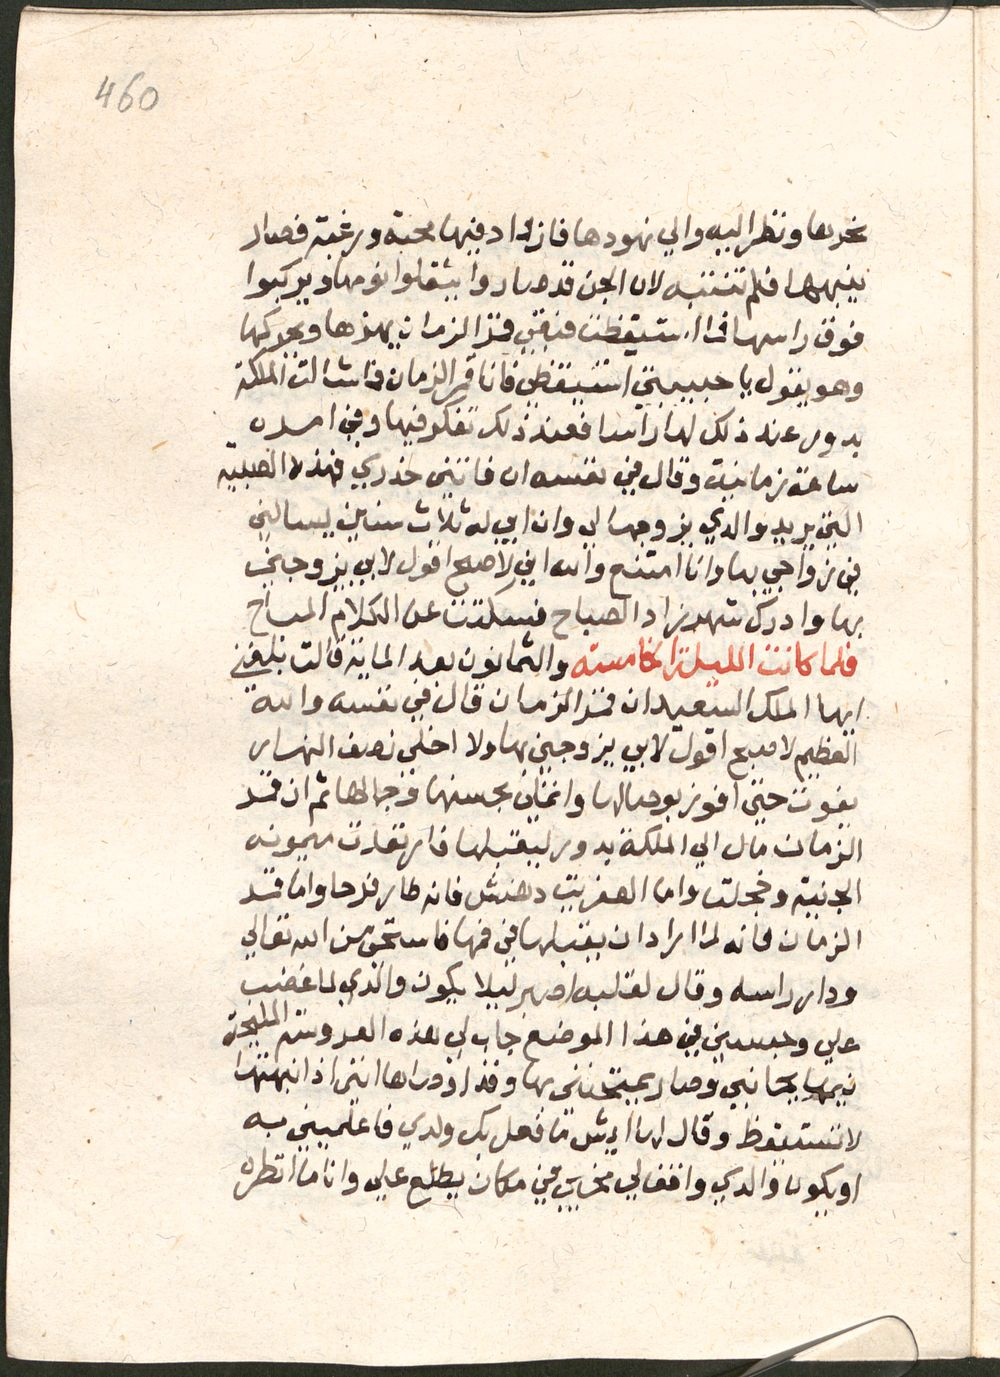 460
نحرها ونظر اليه والي نهودها فازداد فيها محبة ورغبة فصار
ينبهها فلم تنتبه لان الجن قد صاروا يثقلوا نومها ويركبوا
فوق راسها فما استيقظت فبقي قمر الزمان يهزها ويحركها
وهو يقول يا حبيبتي استيقظي فانا قمر الزمان فما شالت الملكة
بدور عند ذلك لها راسا فعند ذلك تفكر فيها وفي امره
ساعة زمانية وقال في نفسه ان فاتني حذري فهذه الصبية
التي يريد والدي يزوجها لي وان ابي له ثلاث سنين يسالني
في زواجي بها وانا امتنع والله اني لاصبح اقول لابي يزوجني
بها وادرك شهرزاد الصباح فسكتت عن الكلام المباح
فلما كانت الليلة الخامسة والثمانون بعد الماية قالت بلغني
ايها الملك السعيد ان قمر الزمان قال في نفسه والله
العظيم لاصبح اقول لابي يزوجني بها ولا اخلي نصف النهار
يفوت حتي افوز بوصالها واتملي بحسنها وجمالها ثم ان قمر
الزمان مال الي الملكة بدور ليقبلها فارتعدت ميمونه
الجنية وخجلت واما العفريت دهنش فانه طار فرحا واما قمر
الزمان فانه لما اراد ان يقبلها في فمها فاستحي من الله تعالي
ودار راسه وقال لقلبه اصبر ليلا يكون والدي لما غضب
علي وحبسني في هذا الموضع جاب لي هذه العروسة المليحة
نيمها بجانبي وصار يمتحنني بها وقد اوراها انني اذا نبهتها
لا تستيقظ وقال لها ايش ما فعل بك ولدي فاعلميني به
او يكون والدي واقف لي مخزي في مكان يطلع علي وانا ما انظره